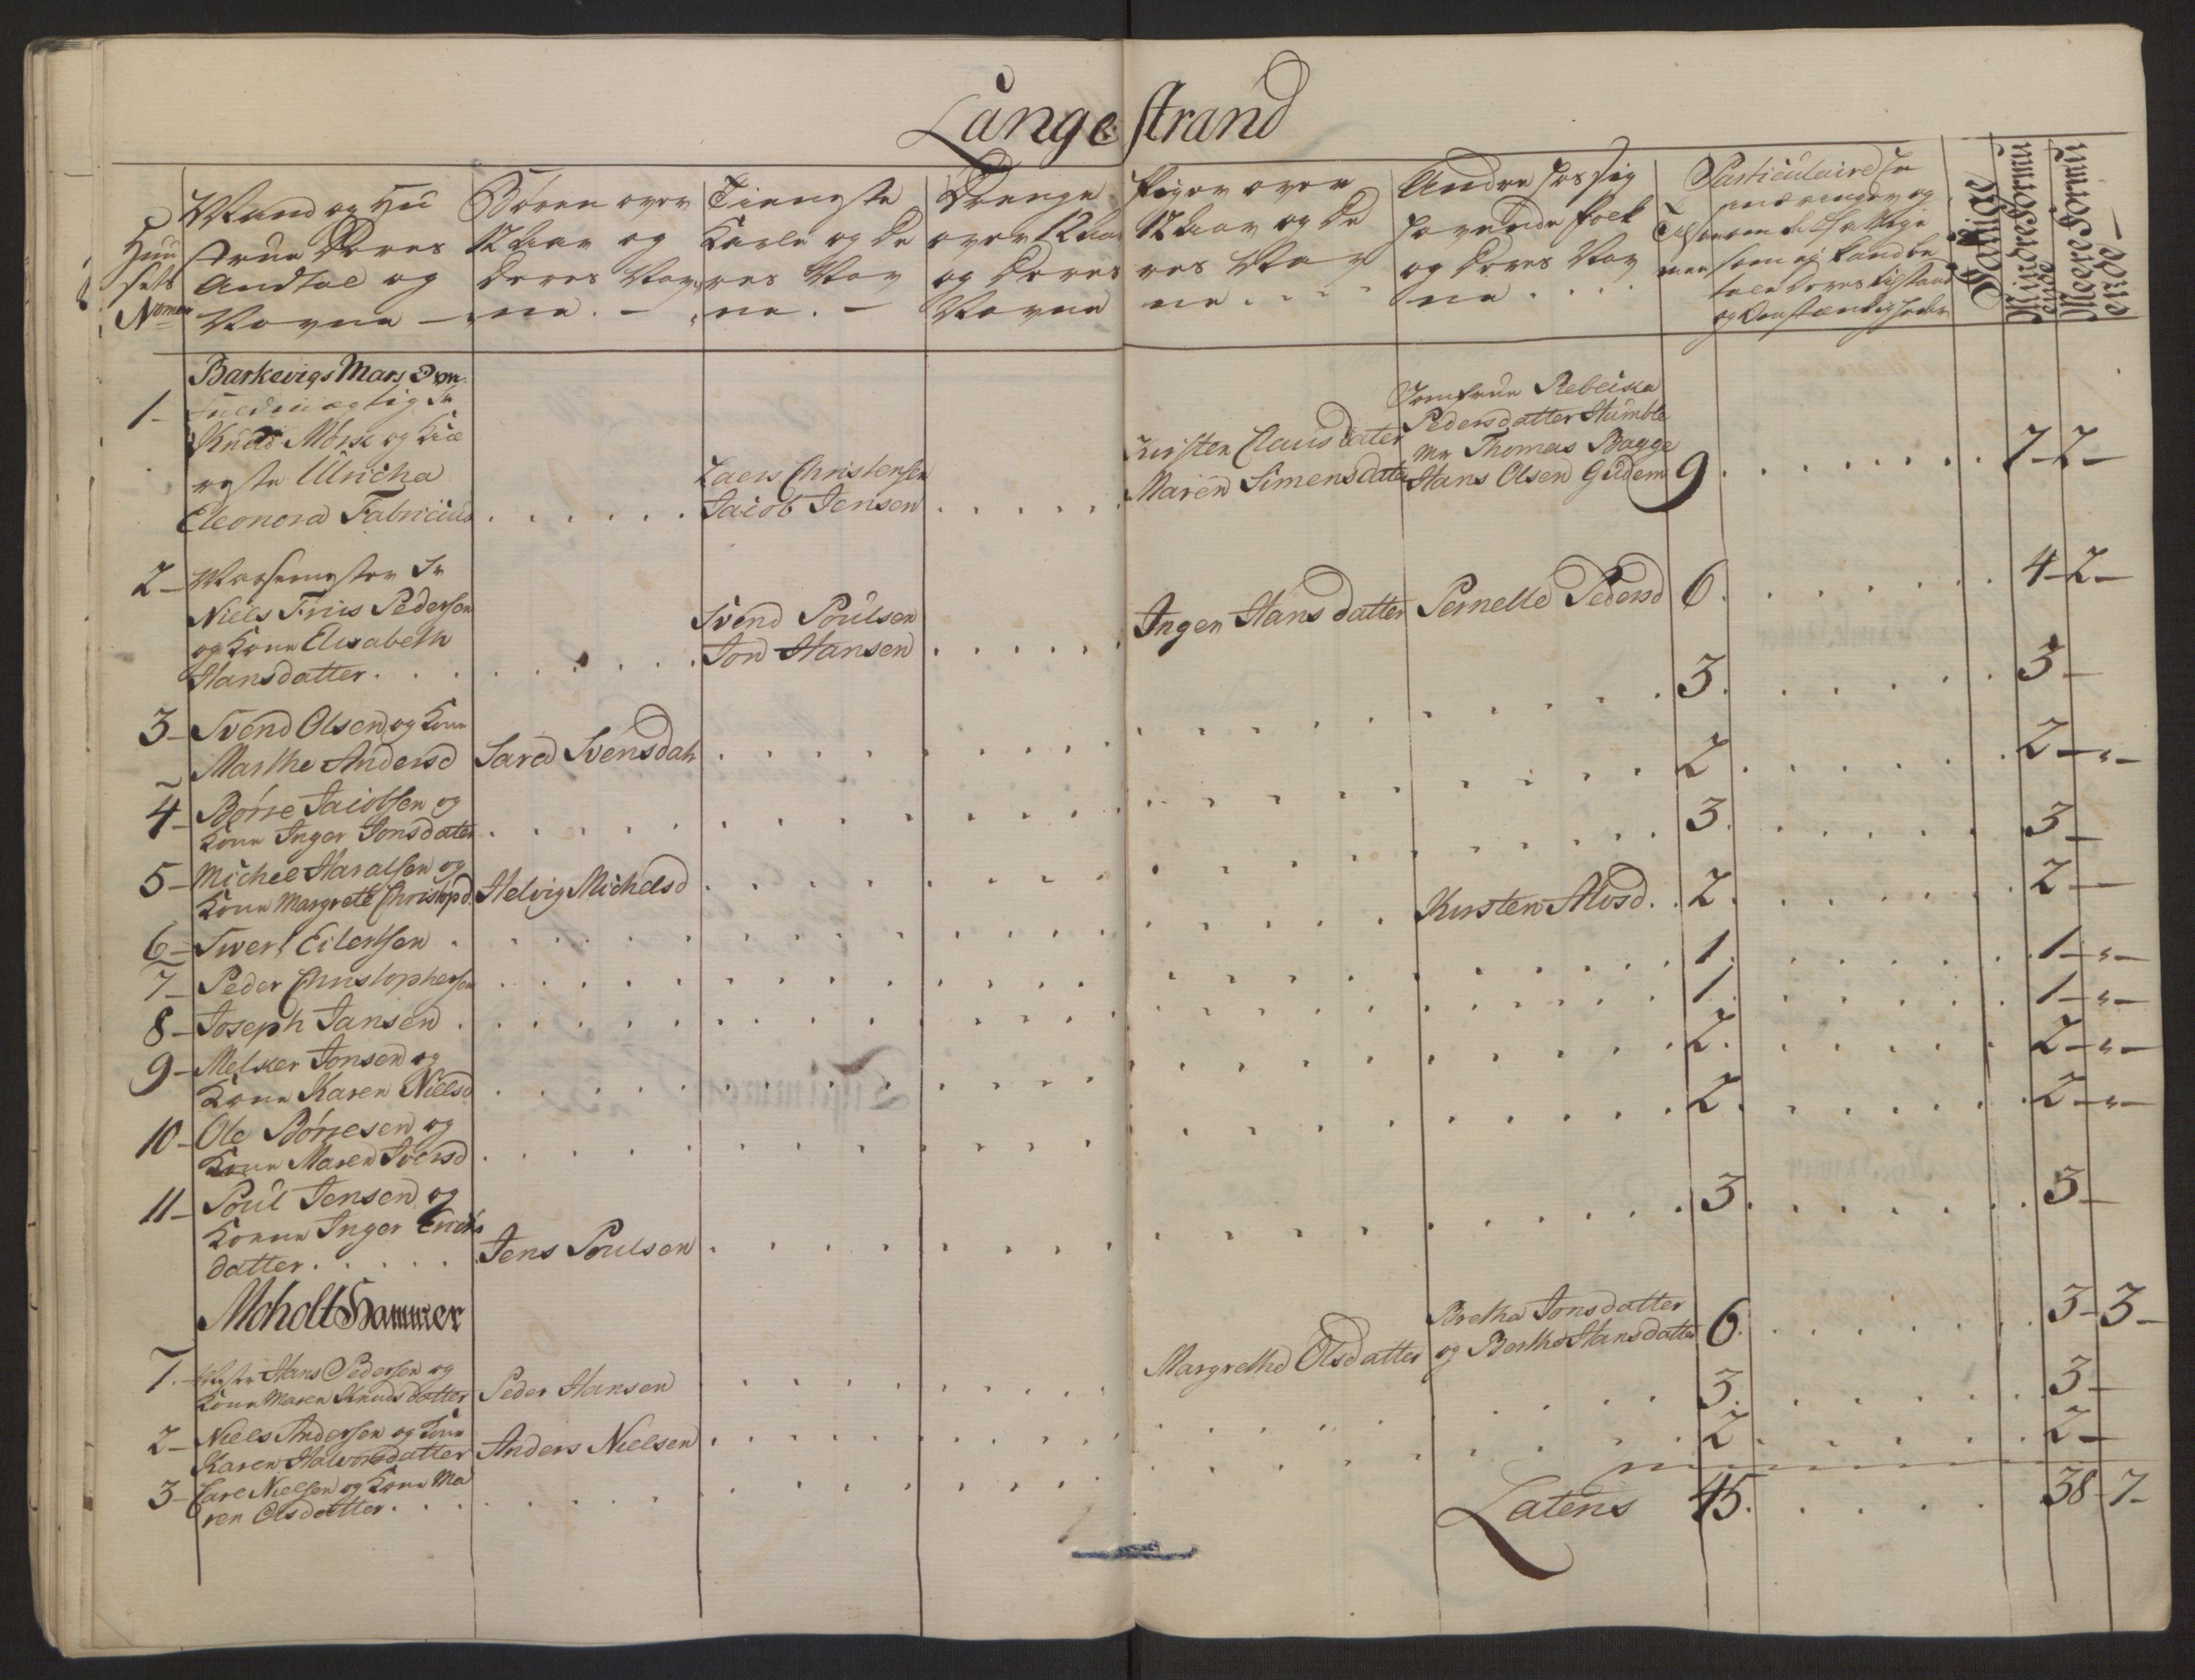 Langestrand
Huu
sets
Nomer
Mand og Hu
strue Deres
Andtal og
Navne
Børn over
12 Aar og
Deres Nav,,
ne.
Tieneste
Karle og De
res Nav
ne.
Drenge
over 12 Aar
og Deres
Navne
Piger over
12 Aar og De
res Nav
ne
Andre hos sig
havende folk
og Deres Nav
ne
Particulaire
og Omstændigheder
Fattige
Mindre Formu
ende
Mere Formu
ende
Barkevigs Mars
1 - Fuldmægtig Sr
Knud Mørk og Kiæ
reste Ulricha
Eleonora Fabricius
Laers Christensen
Jacob Jensen
Kirsten Clausdatter
Maren Simensdatter
Jomfrue Rebecka
Pedersdatter Humble
Mr Thomas Bagge
Hans Olsen Gudem
9 7 - 2 -
2 - Mastermester Sr
Niels Friis Pedersen
og Kone Elisabeth
Hansdatter
Svend Poulsen
Jon Hansen
Inger Hansdatter Pernelle Pedersd 6 4 - 2 -
3 - Svend Olsen og Kone
Marthe Andersd Sara Svensdatr 3 3 -
4 - Børre Jacobsen og
Kone Inger Jonsdatter 2 2 - " -
5 - Michel Haralsen og
Kone Margrete Christopd Helvig Michelsd 3 3 -
6 - Siver Eilertsen Kirsten Mosd 2 2 -
7 - Peder Christophersen 1 1 - " -
8 - Joseph Jansen 1 1 - " -
9 - Melker Jonsen og
Kone Karen Nielsd 2 2 - " -
10 - Ole Børresen og
Kone Maren Iversd 2 2 - " -
11 - Poul Jensen og
Kone Inger Erichs
datter Jens Poulsen 3 3 -
Moholt Hammer
1. - Mester Hans Pedersen og
Kone Maren Knudsdatter Peder Hansen
Margrethe Olsdatter
Bretha Jonsdatter
og Berthe Hansdatter 6 3 - 3 -
2 - Niels Andersen og Kone
Karen Halvorsdatter Anders Nielsen 3 3 -
3 - Carl Nielsen og Kone Ma
ren Olsdatter 2 2 -
Latens 45 38 - 7 -